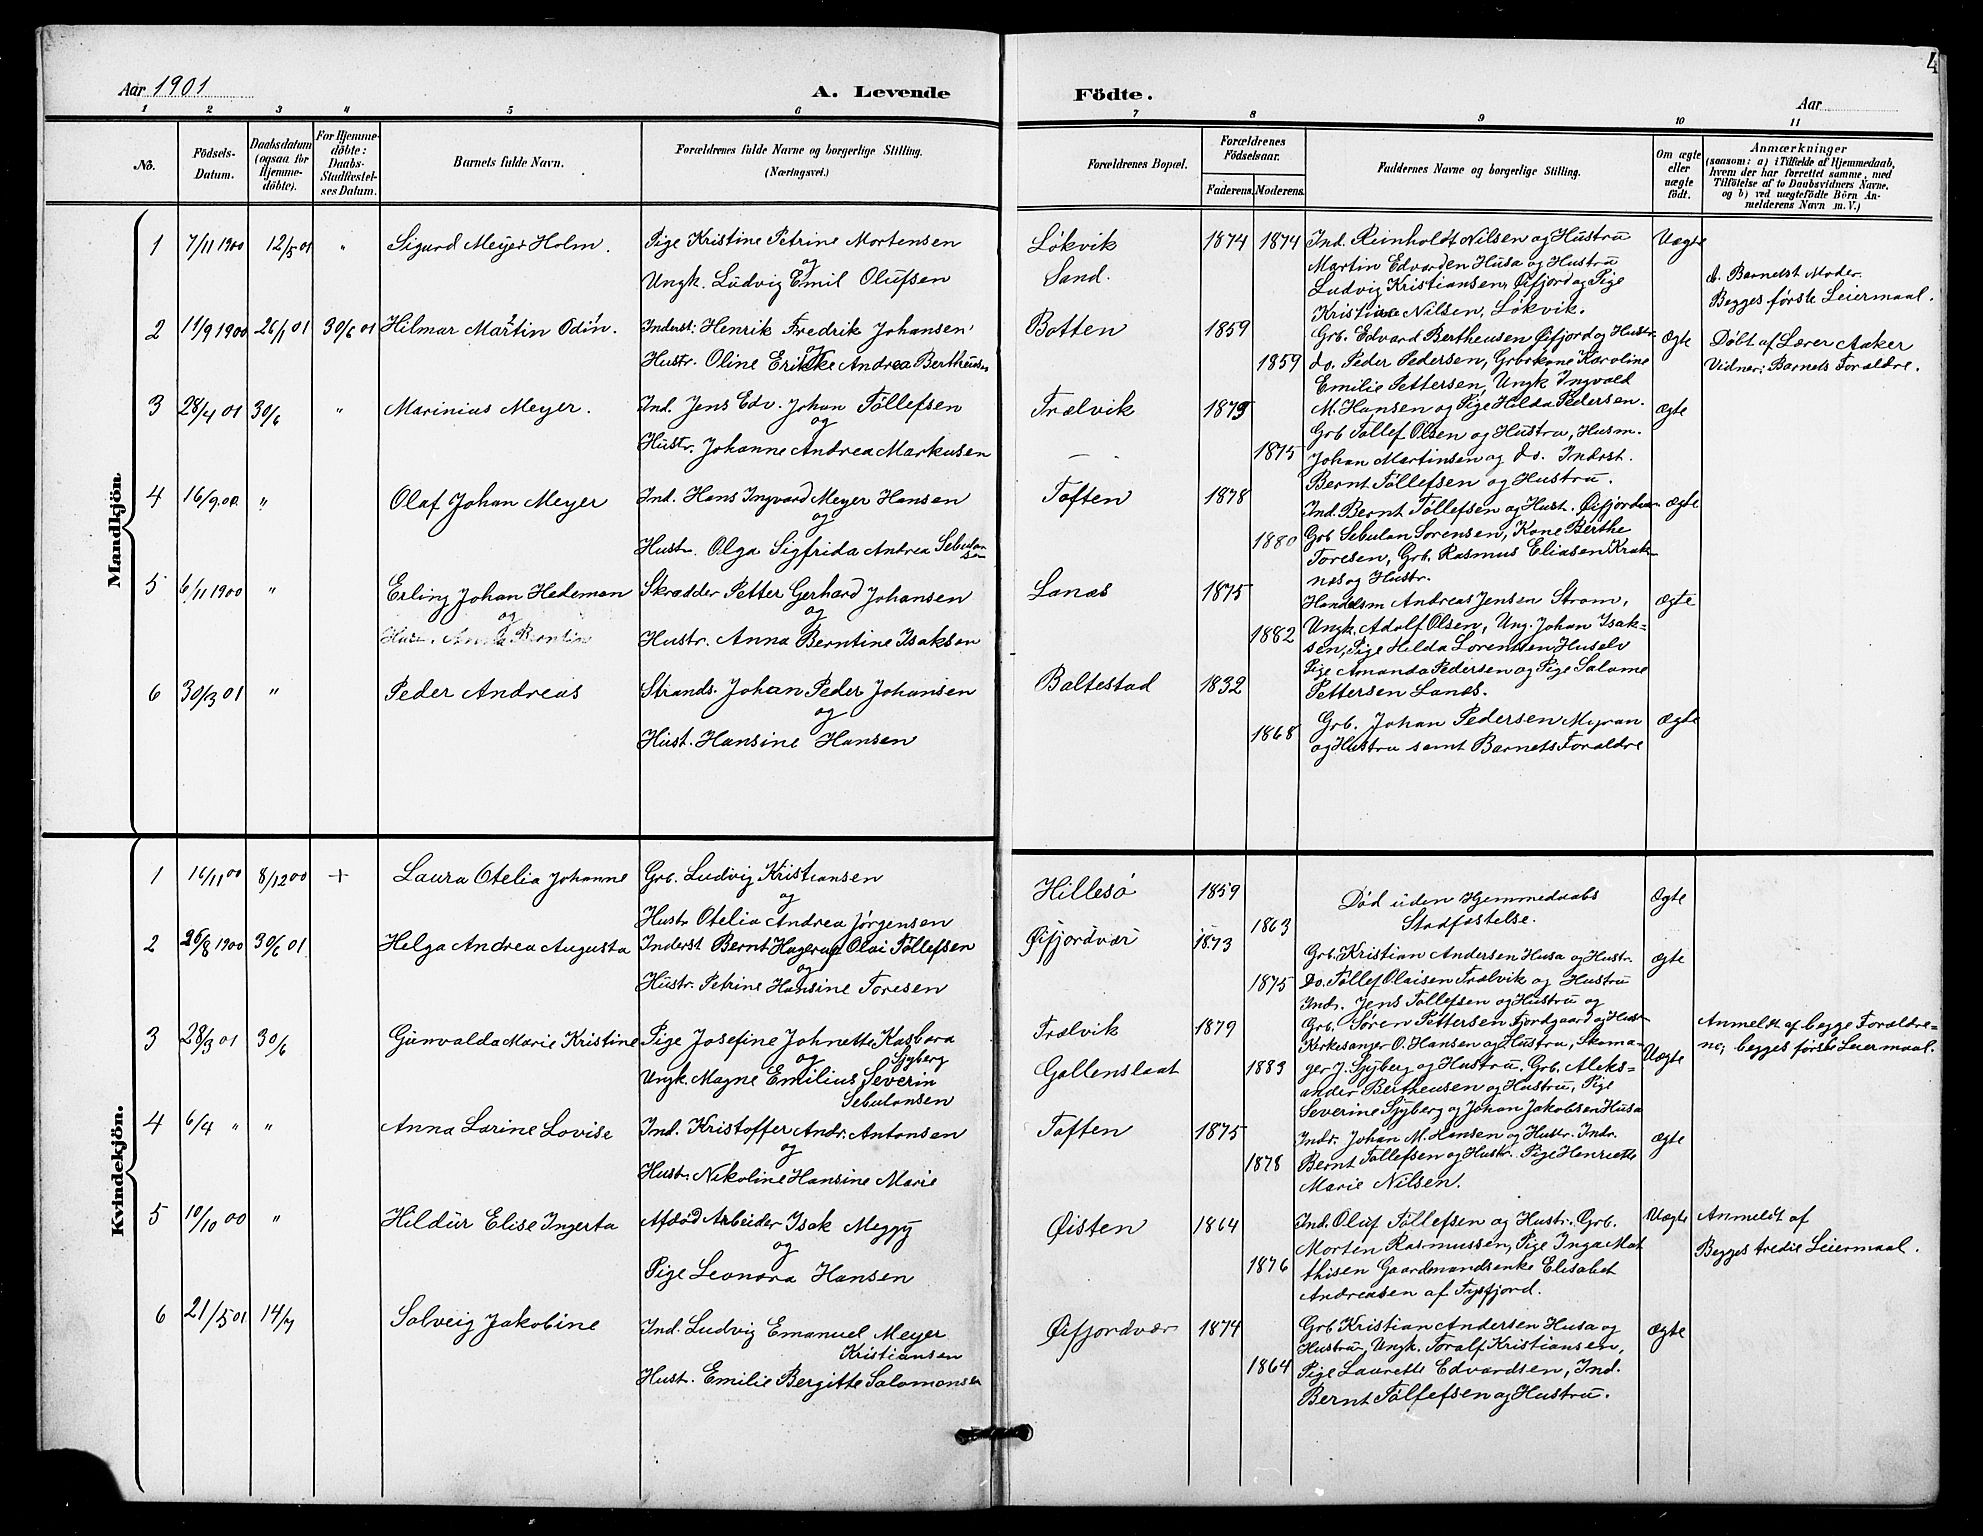 4
Aar 1901
A. Levende
Födte.
Aar
1 2 3 4 5 6 7 8 9 10 11
No.
Födsels-
Datum.
Daabsdatum
(ogsaa for
Hjemme-
døbte).
For Hjemme-
døbte:
Daabs-
Stadfæstel-
ses Datum.
Barnets fulde Navn.
Forældrenes fulde Navne og borgerlige Stilling.
(Næringsvei.)
Forældrenes Bopæl.
Forældrenes
Födselsaar.
Faderens. Moderens.
Faddernes Navne og borgerlige Stilling.
Om ægte
eller
uægte
født.
Anmærkninger
(saasom: a) i Tilfælde af Hjemmedaab,
hvem der har forrettet samme, med
Tilföielse af to Daabsvidners Navne,
og b) ved uægtefödte Börn An-
melderens Navn m. V.)
Mandkjön.
1 7/11 1900 12/5 01 " Sigurd Meyer Holm. Pige Kristine Petrine Mortensen
og
Ungk. Ludvig Emil Olufsen
Løkvik
Sand.
1874 1874
Ind. Reinholdt Nilsen og Hustru
Martin Edvarden Husa og Hustru
Ludvig Kristiansen, Øifjord og Pige
Kristine Nilsen, Løkvik.
Uægte
d. Barnets Moder.
Begges første Leiermaal.
2 11/9 1900 26/1 01 30/6 01 Hilmar Martin Odin. Inderst: Henrik Fredrik Johansen
og
Hustr. Oline Erikke Andrea Bertheusen
Botten
1859
1859
Grb. Edvard Bertheusen Øifjord og Hustr.
do. Peder Pedersen, Gbrkone Karoline
Emilie Pettersen, Ungk Ingvald
M. Hansen og Pige Hilda Pedersen.
Ægte
Døbt af Lærer Aaker
Vidner: Barnets Forældre.
3 28/4 01 30/6 " Marinius Meyer. Ind. Jens Edv. Johan Tollefsen
og
Hustr. Johanne Andrea Markusen
Trælvik
1879
1875
Grb Tollef Olsen og Hustru, Husm.
Johan Martinsen og do. Inderst.
Bernt Tollefsen og Hustru.
Ægte
4 16/9 00 " Olaf Johan Meyer Ind. Hans Ingvard Meyer Hansen
og
Hustr. Olga Sigfrida Andrea Sebulon
sen
Toften
1878
1880
Ind. Bernt Tollefsen og Hust. Øifjordvær
Grb Sebulon Sørensen, Kone Berthe
Toresen, Grb. Rasmus Eliasen Krak-
nes og Hustr.
Ægte
5 6/11 1900 " Erling Johan Hedeman Skrædder Petter Gerhard Johansen
og
Hustr. Anna Berntin
og
Hustr. Anna Berntine Isaksen
Lanes
1875
1882
Handelsm Andreas Jensen Strøm,
Ungk. Adolf Olsen, Ung. Johan Isak-
sen, Pige Hilda Lorentsen Huselv
Pige Amanda Pedersen og Pige Salome
Pettersen Lanes.
Ægte
6 30/3 01 " Peder Andreas Strands. Johan Peder Johansen
og
Hust. Hansine Hansen
Baltestad
1832
1868
Grb. Johan Pedersen Myran
og Hustru samt Barnets Forældre
Ægte
Kvindekjön.
1 16/11 00 8/12 00 + Laura Otelia Johanne Grb. Ludvig Kristiansen
og
Hustr Otelia Andrea Jørgensen
Hillesø
1859
1863
Død uden Hjemmedaabs
Stadfæstelse.
Ægte
2 26/8 1900 30/6 01 Helga Andrea Augusta Inderst Bernt Hagerup Olai Tollefsen
og
Hustr. Petrine Hansine Toresen
Øifjordvær
1873
1875
Grb. Kristian Andersen Husa og Hustr.
Do. Tollef Olaisen Trælvik og Hustru
Indr. Jens Tollefsen og Hustru og
Grb. Søren Pettersen Fjordgaard og Hust-
Ægte
3 28/3 01 30/6 Gunvalda Marie Kristine Pige Josefine Johnette Kasbara
og Sjyberg
Ungk. Magne Emilius Severin
Sebulonsen
Trælvik
Gollenslaat
1879
1883
Kirkesanger O. Hansen og Hustru, Skoma-
ger J. Sjyberg og Hustru. Grb. Aleks-
ander Bertheusen og Hustru, Pige
Severine Sjyberg og Johan Jakobsen Husa
Uægte
Anmeldt af begge Forældre-
ne; begges første Leiermaal.
4 6/4 " " Anna Larine Lovise Ind. Kristoffer Andr. Antonsen
og
Hustr. Nikoline Hansine Marie
Toften
1875
1878
Indr. Johan M. Hansen og Hustr. Indr.
Bernt Tollefsen og Hustr. Pige Henriette
Marie Nilsen.
Ægte
5 10/10 00 " Hildur Elise Ingerta Afdød Arbeider Isak Meggy
og
Pige Leonora Hansen
Øisten
1864
1876
Ind. Oluf Tollefsen og Hustr. Grb.
Morten Rasmussen, Pige Inga Mat
thisen Gaardmandsenke Elisabet
Andreasen af Tysfjord.
Uægte
Anmeldt af
Begges tredie Leiermaal.
6 21/5 01 14/7 Solveig Jakobine Ind. Ludvig Emanuel Meyer
Kristiansen
Hust. Emilie Bergitte Salomonsen
Øifjordvær
1874
1864
Grb Kristian Andersen Husa og
Hustru, Ungk. Toralf Kristiansen,
Pige Laurette Edvardsen, Ind.
Bernt Tollefsen og Hustru.
Ægte